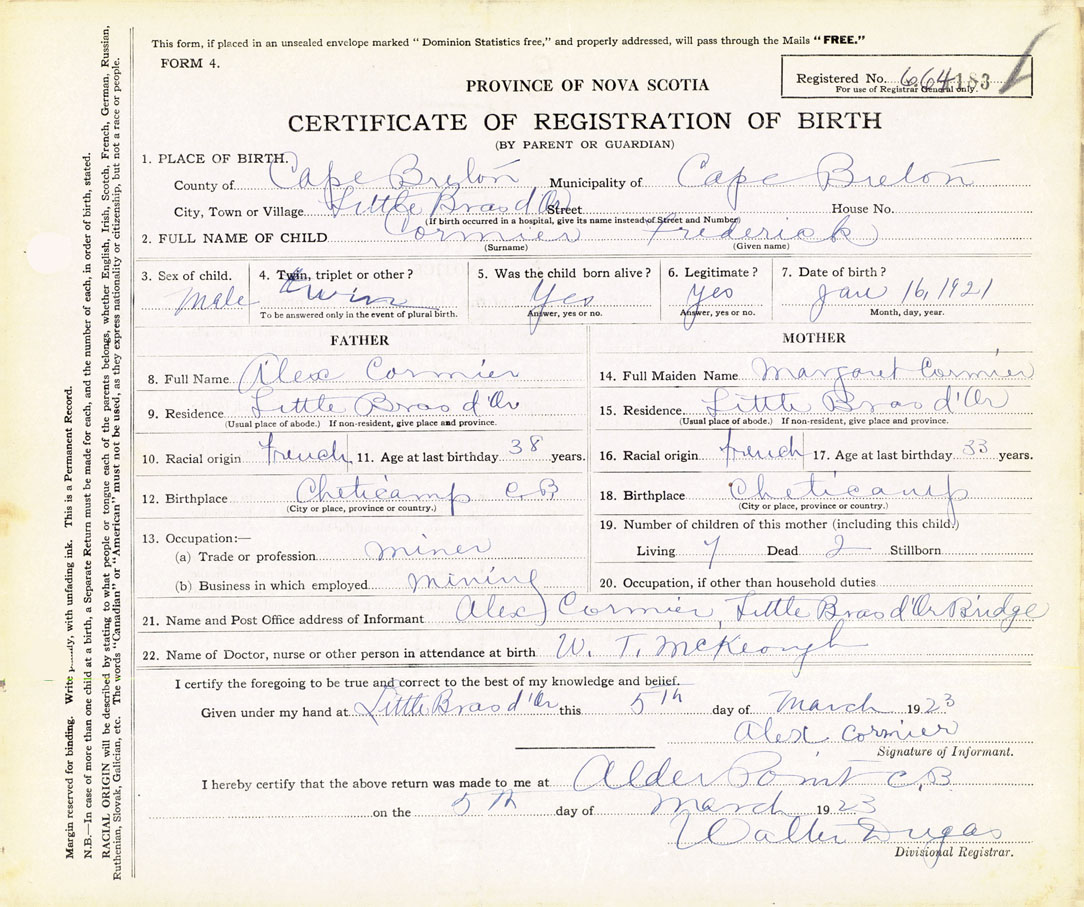 This form, if placed in an unsealed envelope marked “Dominion Statistics free,” and properly addressed, will pass through the Mails “FREE.”
FORM 4.
PROVINCE OF NOVA SCOTIA
Registered No. 664 183
For use of Registrar General only.
CERTIFICATE OF REGISTRATION OF BIRTH
(BY PARENT OR GUARDIAN)
1. PLACE OF BIRTH.
County of Cape Breton Municipality of Cape Breton
City, Town or Village Little Bras d'Or Street House No.
(If birth occurred in a hospital, give its name instead of Street and Number)
2. FULL NAME OF CHILD Cormier Frederick
(Surname) (Given name)
3. Sex of child. 4. Twin, triplet or other? 5. Was the child born alive? 6. Legitimate? 7. Date of birth?
Male twin Yes yes Jan 16, 1921
To be answered only in the event of plural birth. Answer, yes or no. Answer, yes or no. Month, day, year.
FATHER MOTHER
8. Full Name Alex Cormier 14. Full Maiden Name Margaret Cormier
9. Residence Little Bras d'Or 15. Residence Little Bras d'Or
(Usual place of abode.) If non-resident, give place and province. (Usual place of abode.) If non-resident, give place and province.
10. Racial origin french 11. Age at last birthday 38 years. 16. Racial origin french 17. Age at last birthday 33 years.
12. Birthplace Cheticamp C.B. 18. Birthplace Cheticamp
(City or place, province or country.) (City or place, province or country.)
13. Occupation:— 19. Number of children of this mother (including this child.)
(a) Trade or profession miner Living 7 Dead 2 Stillborn
(b) Business in which employed mining 20. Occupation, if other than household duties
21. Name and Post Office address of Informant Alex Cormier, Little Bras d'Or Bridge
22. Name of Doctor, nurse or other person in attendance at birth W. T. McKeough
I certify the foregoing to be true and correct to the best of my knowledge and belief.
Given under my hand at Little Bras d'Or this 5th day of March 1923
Alex Cormier
Signature of Informant.
I hereby certify that the above return was made to me at Alder Point C.B
on the 5th day of March 1923
Walter Dugas
Divisional Registrar.
Margin reserved for binding. Write with unfading ink. This is a Permanent Record.
N.B.—In case of more than one child at a birth, a Separate Return must be made for each, and the number of each, in order of birth, stated.
RACIAL ORIGIN will be described by stating to what people or tongue each of the parents belongs, whether English, Irish, Scotch, French, German, Russian,
Ruthenian, Slovak, Galician, etc. The words “Canadian” or “American” must not be used, as they express nationality or citizenship, but not a race or people.